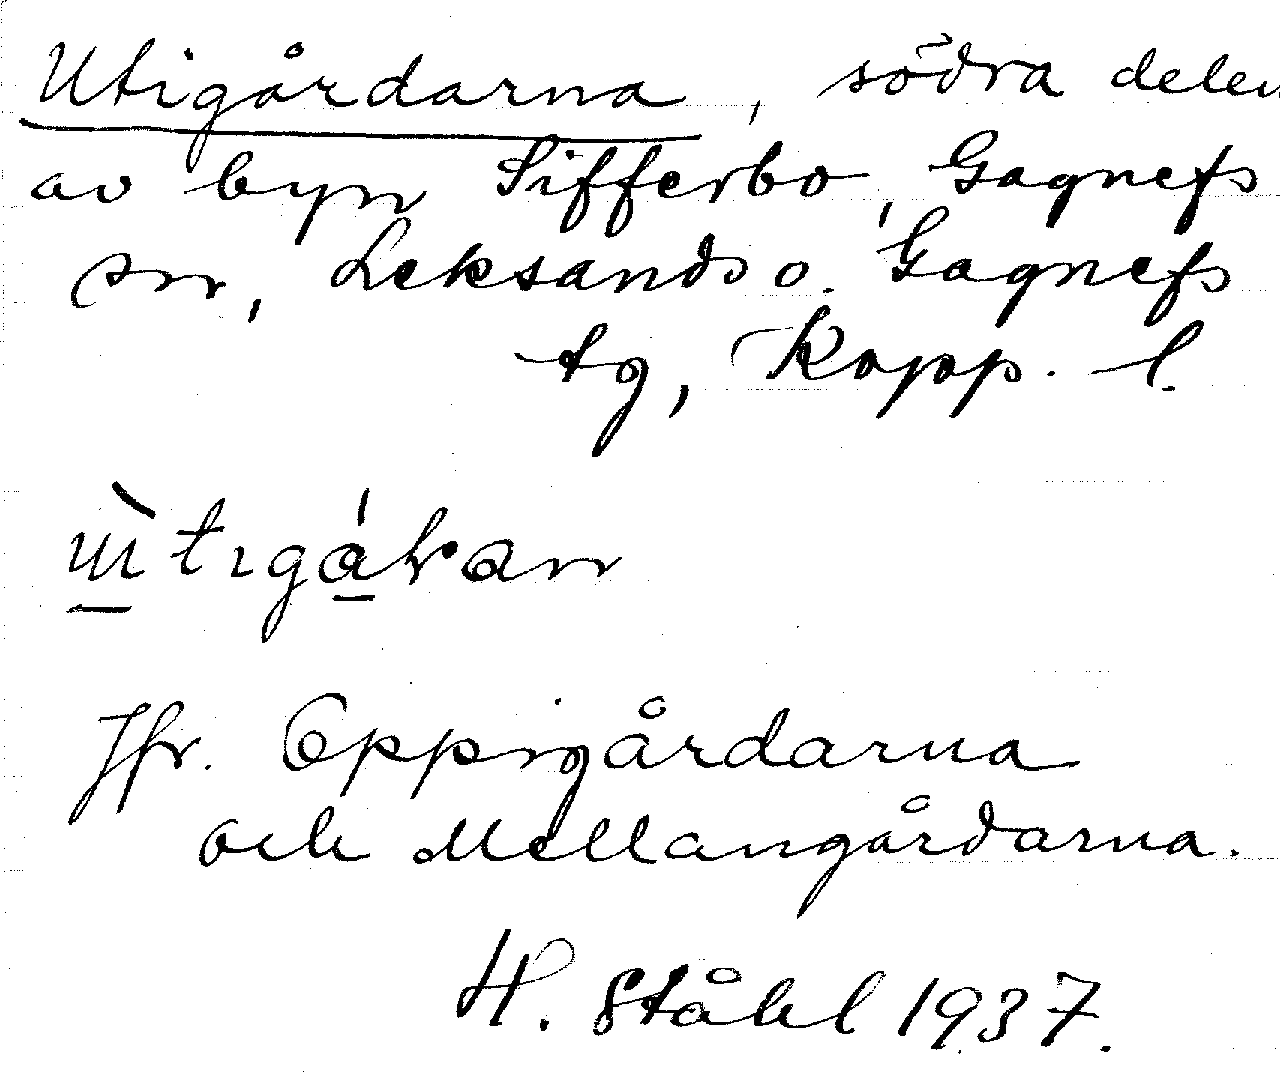 Utigårdarna, södra delen
av byn Sifferbo, Gagnefs
sn, Leksands o. Gagnefs
tg, Kopp. l.
Jfr. Oppigårdarna
och Mellangårdarna.
H. Ståhl 1937.